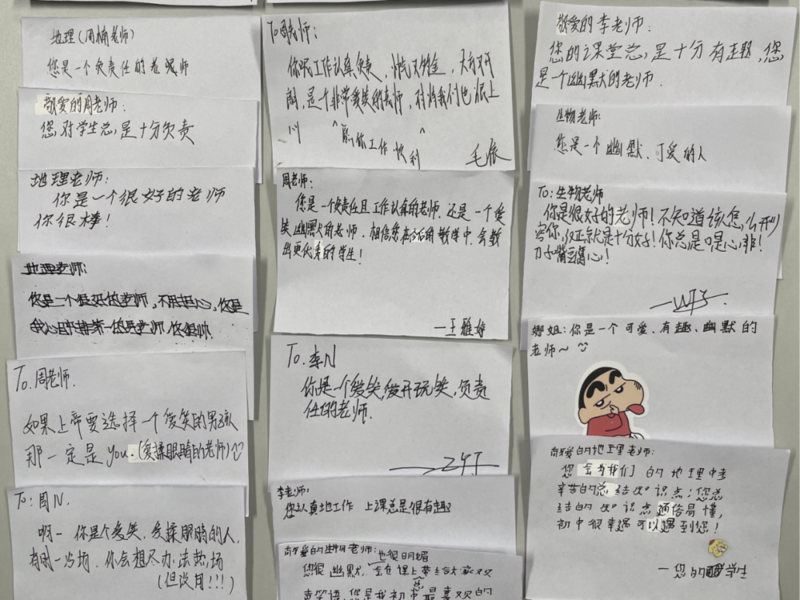 地理(周楠老师)
您是一个负责任的老师
敬爱的周老师:
您对学生总是十分负责
地理老师:
你是一个很好的老师
你很棒!
地理老师:
To:周老师.
如果上帝要选择一个爱笑的男孩
那一定是you.(爱揉眼睛的老师)
To:周N.
啊一你是个爱笑、爱揉眼睛的人,
有时一冷场,你会想尽办法热场
(但没用!!!)
To周老师:
你呢工作认真负责,
是一个非常爱笑的老师,
祝你工作顺利
周老师:
您是一个负责任且工作认真的老师.还是一个爱
笑幽默的老师.相信您在后的教学中,会教
出更优秀的学生!
一王雅婷
To.李N
你是一个爱笑,爱开玩笑,负责
任的老师.
ZYT
李老师:
您认真地工作 上课总是很有趣
敬爱的生物老师:
也很明媚
您很幽默,
您是我初中最喜欢的
敬爱的李老师:
您的课堂总是十分有正题,您
是个幽默的老师.
生物老师:
您是一个幽默、可爱的人
To:生物老师
你是很好的老师!不知道该怎么形
容你,反正就是十分好!你总是口是心非!
刀子嘴豆腐心!
娜姐:你是一个可爱、有趣、幽默的
老师~
敬爱的地理老师:
您会为我们的地理中考
辛苦的总结知识点;您总
结的知识点通俗易懂,
初中很幸遇可以遇到您!
一您的学生